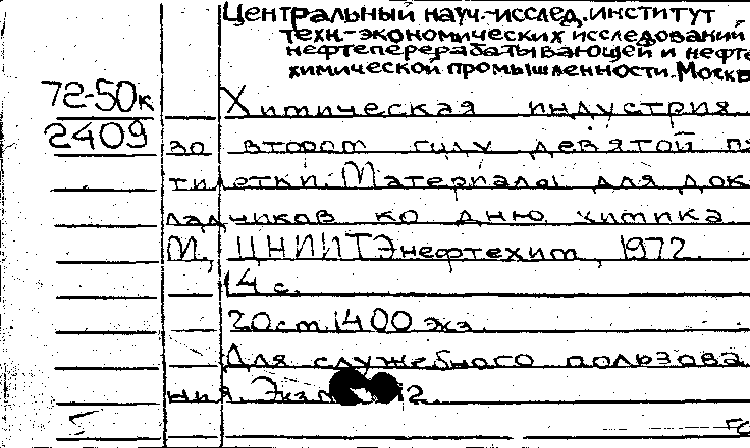 Центральный науч.-исслед. институт
техн.-экономических исследований
нефтеперерабатывающей и нефте
химической промышленности. Москв
72-50к
Химическая индустрия
2409
во втором году девятой пя
тилетки. Материалы для док
ладчиков ко дню химика
М., ЦНИИТЭнефтехим, 1972.
14 с.
20 см. 1400 экз.
Для служебного пользова
ния. Экз